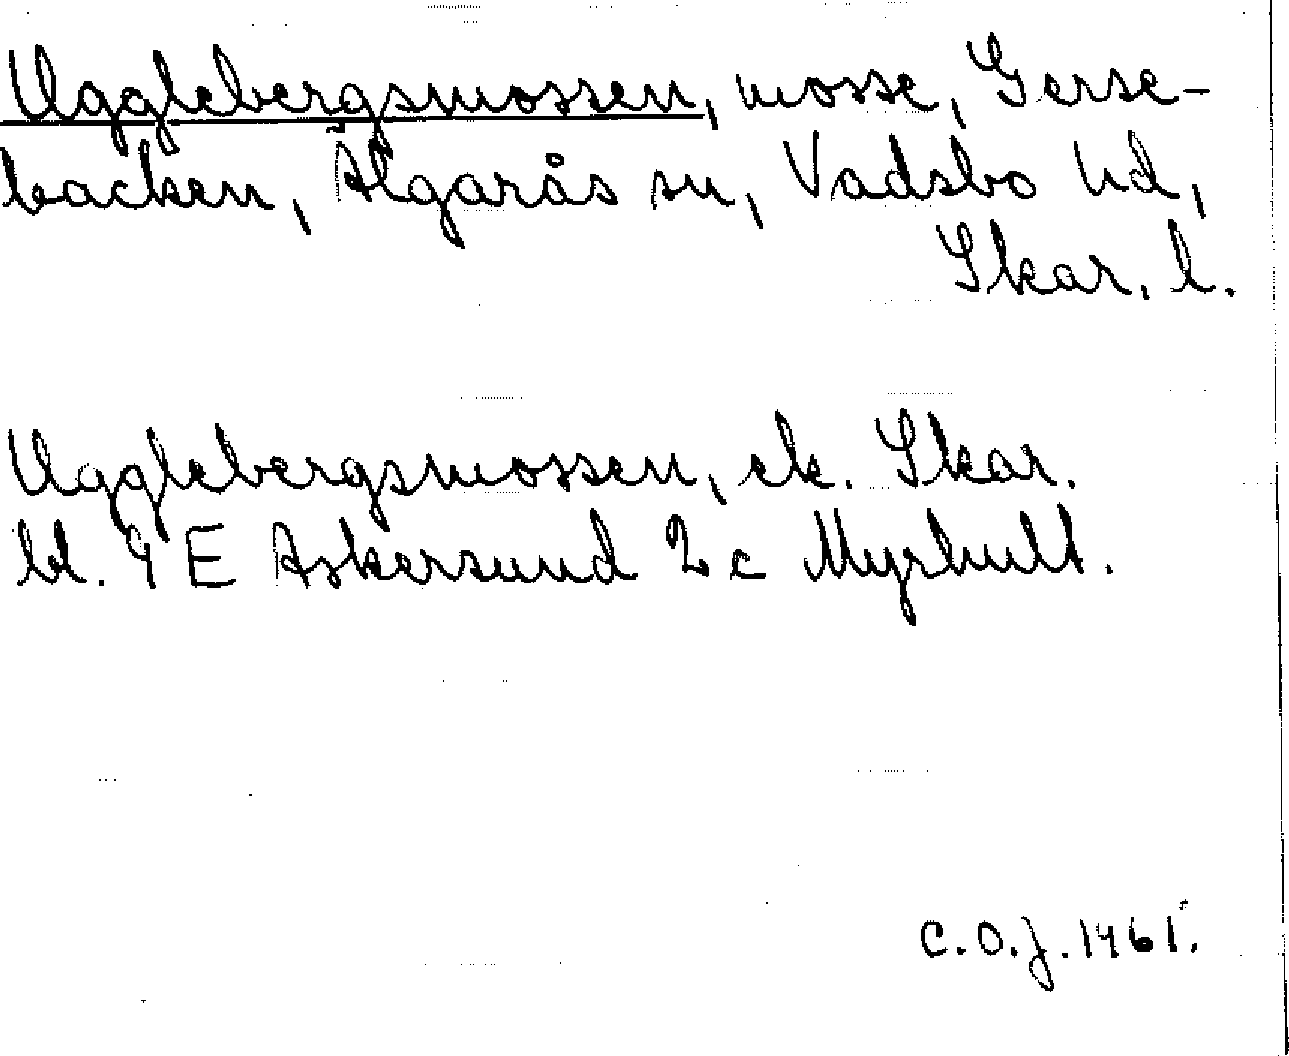 Ugglebergsmossen, mosse, Gerse-
backen, Älgarås sn, Vadsbo hd,
Skar. l.
Ugglebergsmossen, ek. Skar.
bl. 9 E Askersund 2 c Myrhult.
C.O.J. 1965.